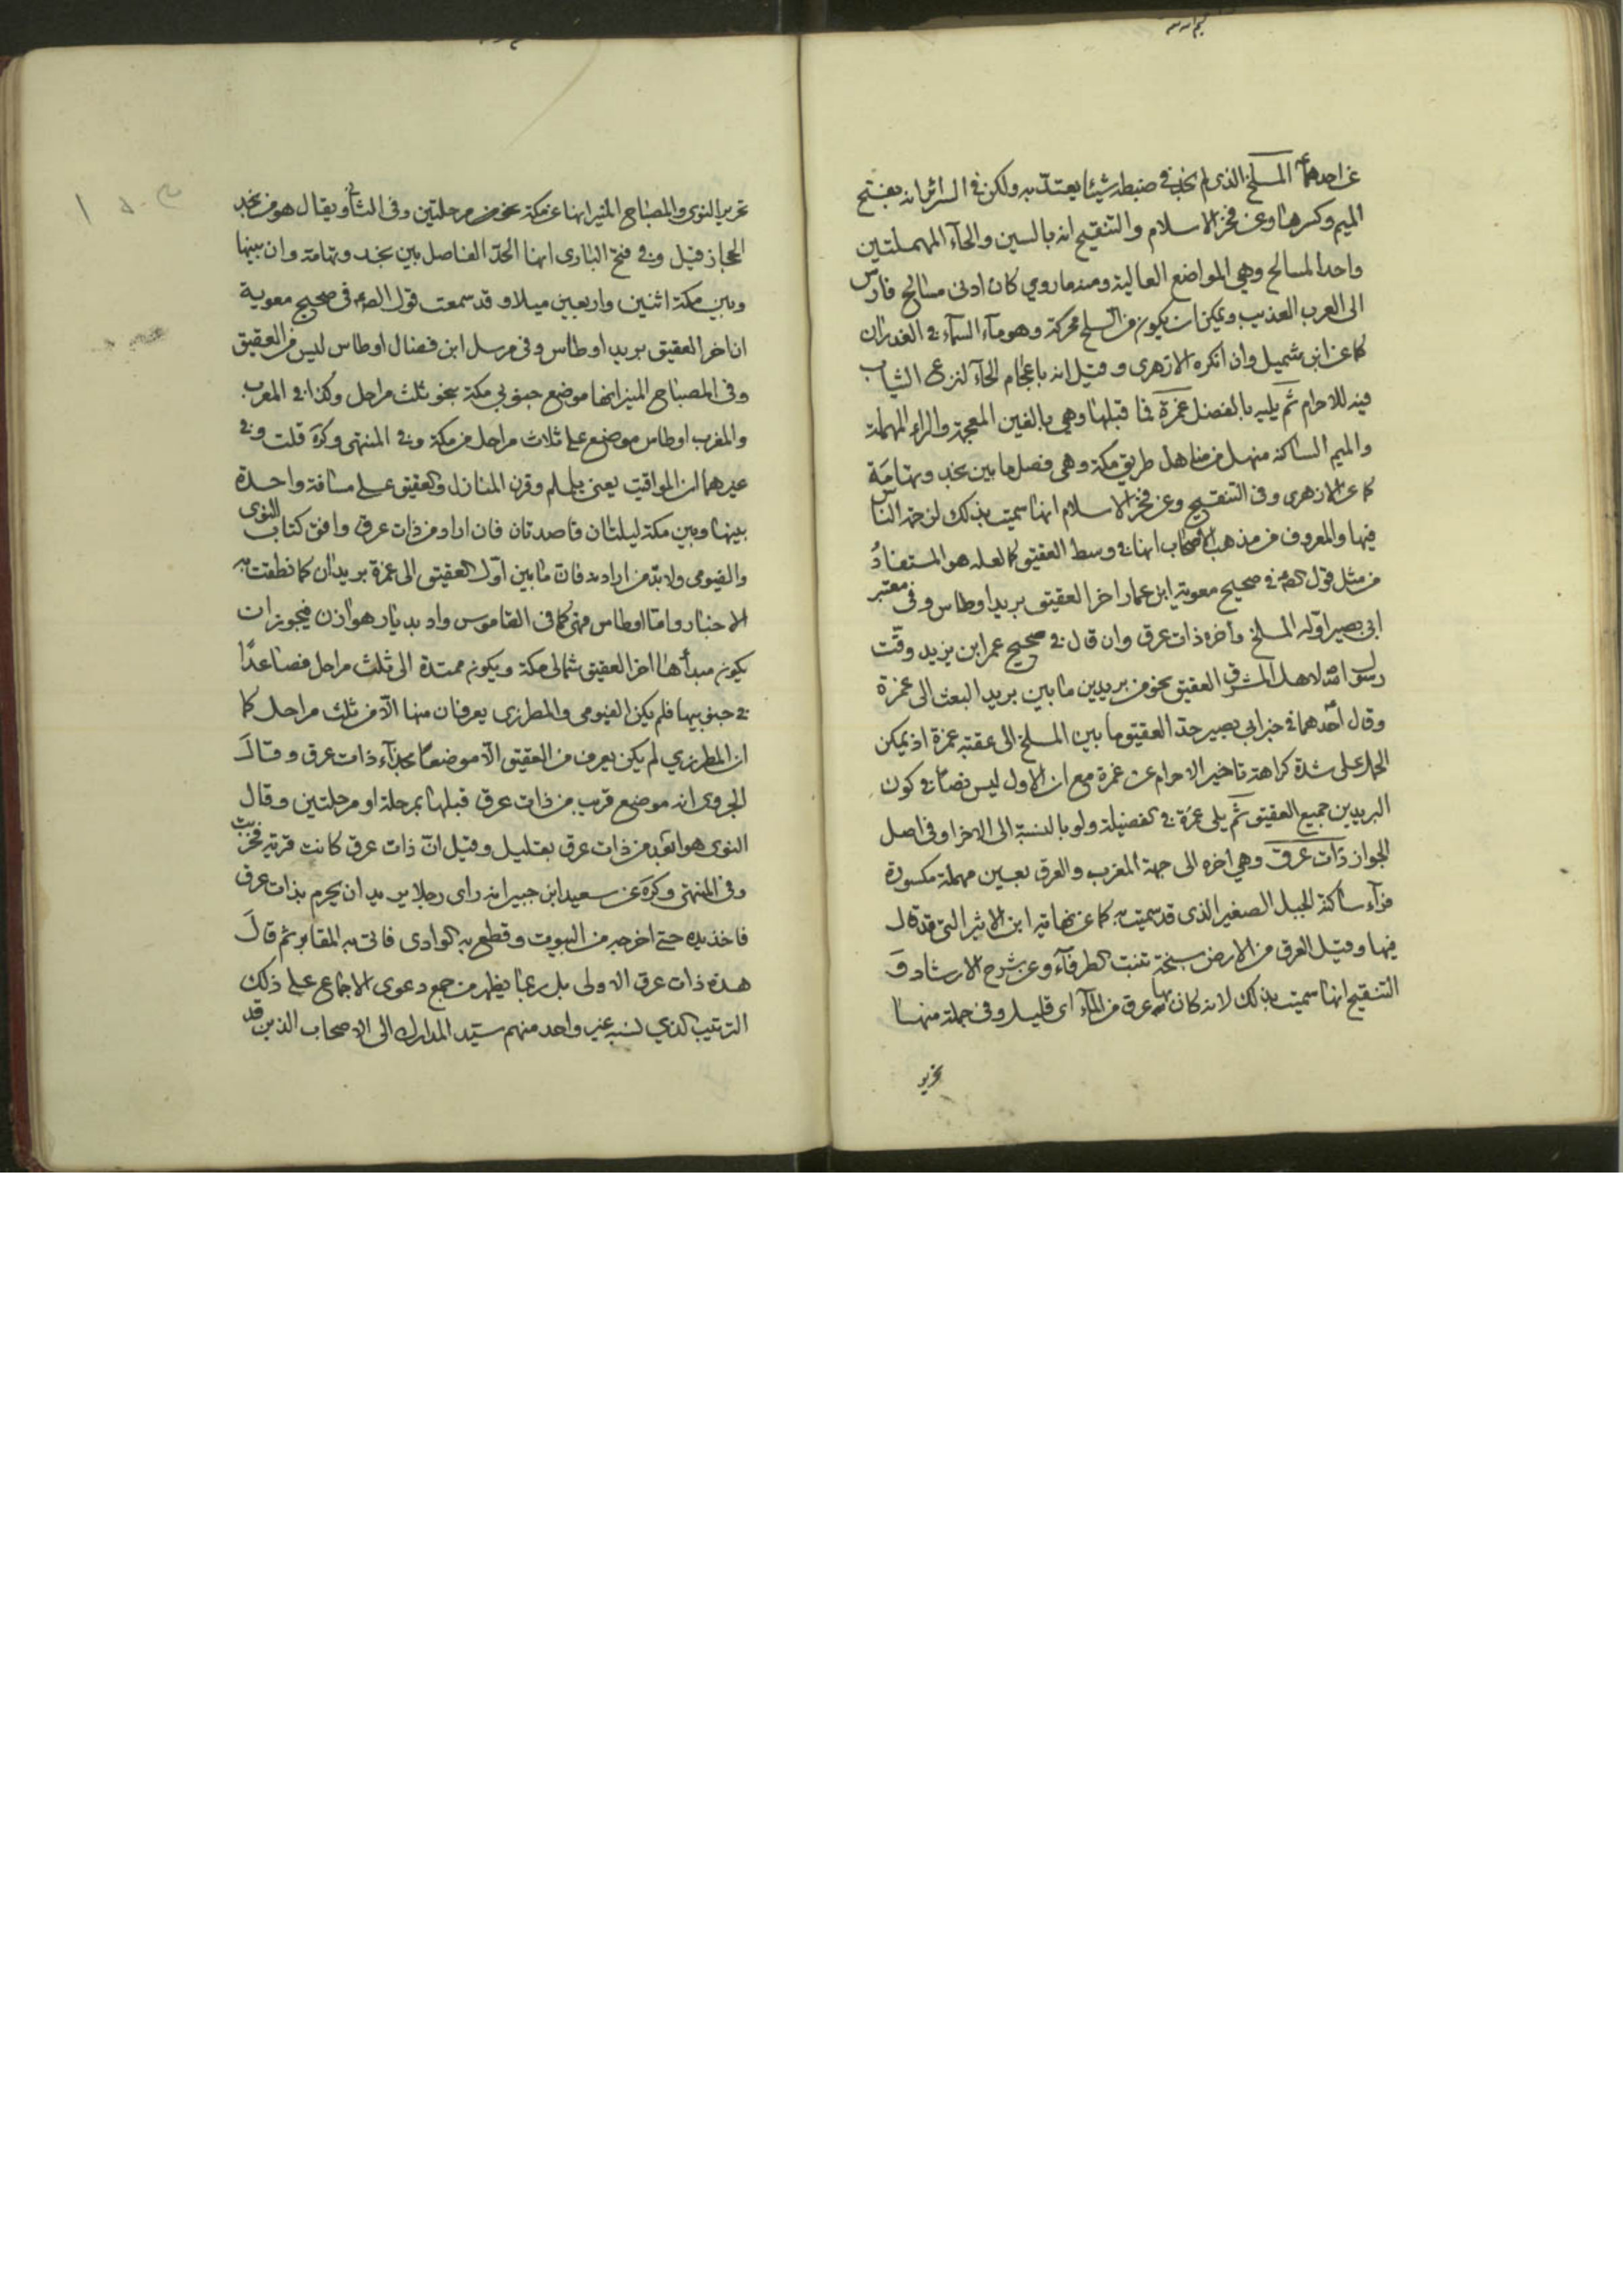 عن احدهما المسلخ الذى لم نجد فى ضبطه شيئا يعتد به ولكن فى السرائر انه بفتح
الميم وكسرها وعن فخر الاسلام والتنقيح انه بالسين والحاء المهملتين
واحد المسالح وهى المواضع العالية ومنه ما روي كان ادنى مسالح فارس
الى العرب العذيب ويمكن ان يكون من السلخ محركة وهو ماء السماء فى الغدران
كما عن ابن شميل وان انكره الازهرى وقيل انه باعجام الخاء لنزع الثياب
فيه للاحرام ثم يليه بالفضل غمرة فما قبلها وهى بالغين المعجمة والراء المهملة
والميم الساكنة منهل من مناهل طريق مكة وهى فصل ما بين نجد وتهامة
كما عن الازهرى وفى التنقيح وعن فخر الاسلام انها سميت بذلك لزحمة الناس
فيها والمعروف من مذهب الاصحاب انها فى وسط العقيق كما لعله هو المستفاد
من مثل قول الصه فى صحيح معوية ابن عمار اخر العقيق بريد اوطاس وفى معتبر
ابى بصير اوله المسلخ واخره ذات عرق وان قال فى صحيح عمر ابن يزيد وقت
رسول الله لاهل المشرق العقيق نحو من بريدين ما بين بريد البعث الى غمرة
وقال احدهما فى خبر ابى بصير حد العقيق ما بين المسلخ الى عقبة غمرة اذ يمكن
الحمل على شدة كراهة تاخير الاحرام عن غمرة مع ان الاول ليس نصا فى كون
البريدين جميع العقيق ثم يلى غمرة فى الفضيلة ولو بالنسبة الى الاخر او فى اصل
الجواز ذات عرق وهى اخره الى جهة المغرب والعرق بعين مهملة مكسورة
فراء ساكنة الجبل الصغير الذى قد سميت به كما عن نهاية ابن الاثير التى قد قال
فيها وقيل العرق من الارض سبخة تنبت الطرفاء وعن شرح الارشاد و
التنقيح انها سميت بذلك لانه كان بها عرق من الماء اى قليل وفى جملة منها
تحرير
تحرير النوى والمصباح المنير انها عن مكة نحو من مرحلتين وفى الثانى ويقال هو من نجد
الحجاز قيل وفى فتح البارى انها الحد الفاصل بين نجد وتهامة وان بينها
وبين مكة اثنين واربعين ميلا وقد سمعت قول الصه فى صحيح معوية
ان اخر العقيق بريد اوطاس وفى مرسل ابن فضال اوطاس ليس من العقيق
وفى المصباح المنير انها موضع جنوبي مكة بنحو ثلث مراحل وكذا فى المعرب
والمغرب اوطاس موضع على ثلاث مراحل من مكة وفى المنتهى وكره قلت وفى
غيرهما ان المواقيت يعنى يلملم وقرن المنازل والعقيق على مسافة واحدة
بينها وبين مكة ليلتان قاصدتان فان اراد من ذات عرق وافق كتاب النوى
والفيومى ولابد من اراده فان ما بين اول العقيق الى غمرة بريدان كما نطقت به
الاخبار واما اوطاس فهى كما فى القاموس واد بديار هوازن فيجوز ان
يكون مبدأها اخر العقيق شمالى مكة ويكون ممتدة الى ثلث مراحل فصاعدا
فى جنوبيها فلم يكن الفيومى والمطرزى يعرفان منها الا من ثلث مراحل كما
ان المطرزي لم يكن يعرف من العقيق الا موضعا بحذاء ذات عرق وقال
الجروى انه موضع قريب من ذات عرق قبلها بمرحلة او مرحلتين وقال
النوى هو ابعد من ذات عرق بقليل وقيل ان ذات عرق كانت قرية فخربت
وفى المنتهى وكره عن سعيد ابن جبير انه راى رجلا يريد ان يحرم بذات عرق
فاخذ بيده حتى اخرجه من البيوت وقطع به الوادى فاتى به المقابر ثم قال
هذه ذات عرق الاولى بل ربما يظهر من جمع دعوى الاجماع على ذلك
الترتيب الذي نسبه غير واحد منهم سيد المدارك الى الاصحاب الذين قد